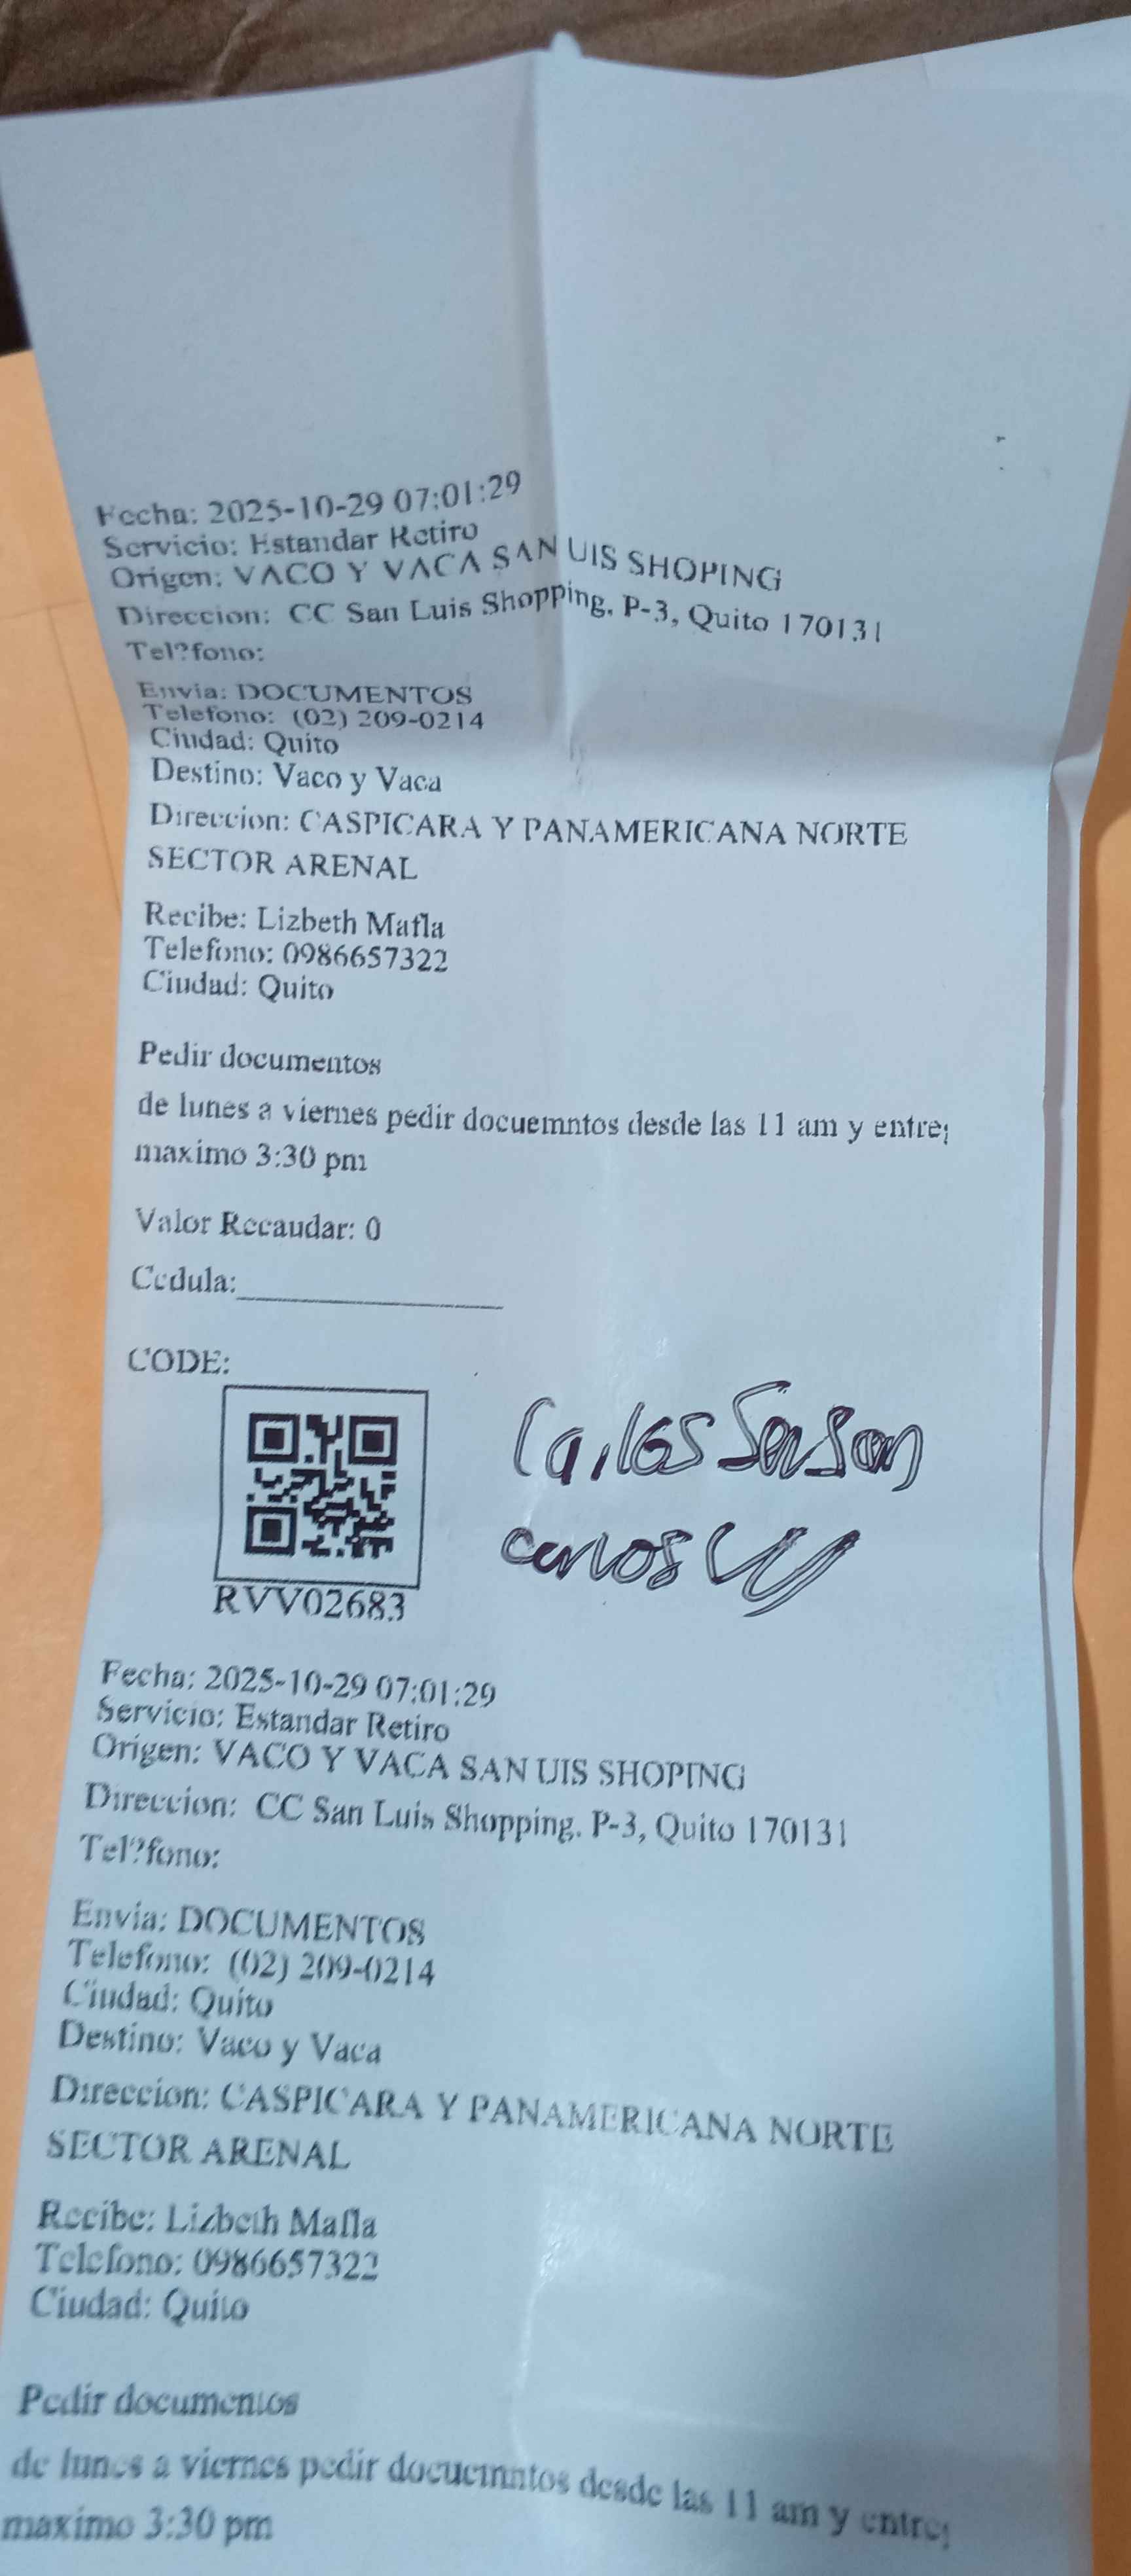 Fecha: 2025-10-29 07:01:29
Servicio: Estandar Retiro
Origen: VACO Y VACA SAN UIS SHOPING
Direccion: CC San Luis Shopping, P-3, Quito 170131
Tel?fono:
Envia: DOCUMENTOS
Telefono: (02) 209-0214
Ciudad: Quito
Destino: Vaco y Vaca
Direccion: CASPICARA Y PANAMERICANA NORTE
SECTOR ARENAL
Recibe: Lizbeth Mafla
Telefono: 0986657322
Ciudad: Quito
Pedir documentos
de lunes a viernes pedir docuemntos desde las 11 am y entre
maximo 3:30 pm
Valor Recaudar: 0
Cedula:
CODE:
Carlos
Carlos
RVV02683
Fecha: 2025-10-29 07:01:29
Servicio: Estandar Retiro
Origen: VACO Y VACA SAN UIS SHOPING
Direccion: CC San Luis Shopping, P-3, Quito 170131
Tel?fono:
Envia: DOCUMENTOS
Telefono: (02) 209-0214
Ciudad: Quito
Destino: Vaco y Vaca
Direccion: CASPICARA Y PANAMERICANA NORTE
SECTOR ARENAL
Recibe: Lizbeth Mafla
Telefono: 0986657322
Ciudad: Quito
Pedir documentos
de lunes a viernes pedir docuemntos desde las 11 am y entre
maximo 3:30 pm